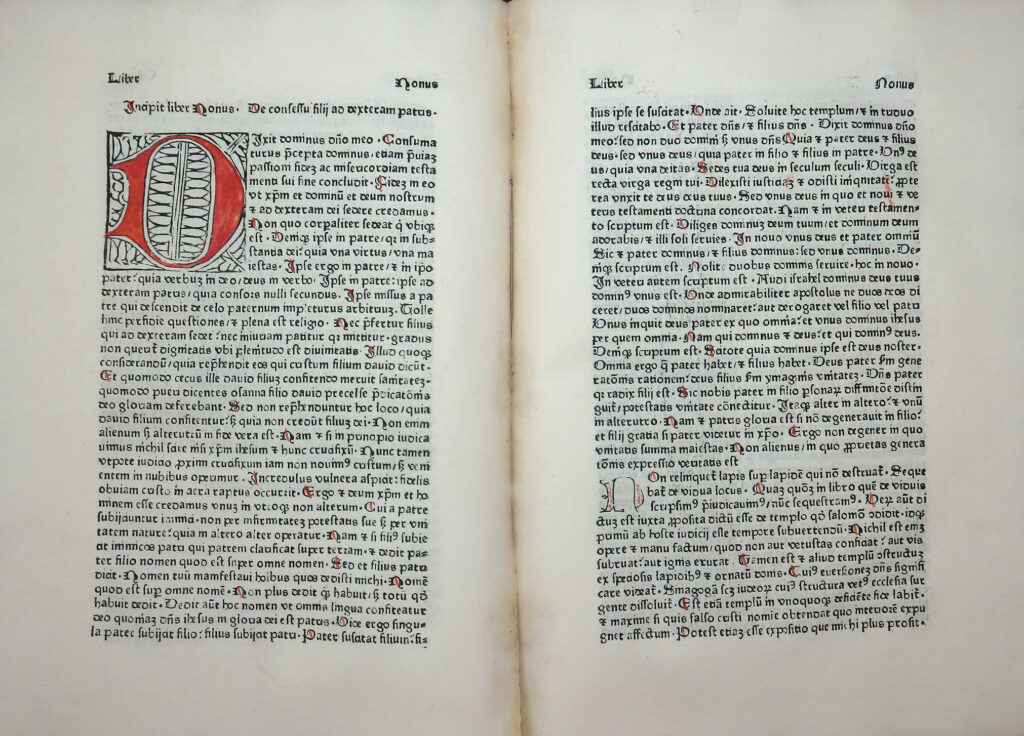 Liber Nonus
Incipit liber Nonus. De consessu filij ad dexteram patris.
Dixit dominus dño meo. Consuma
turus p̄cepta dominus/etiam p̄uiaz
passioni fidez ac misericordiam testa
menti sui fine concludit. Fidez in eo
vt xp̄m et dominū et deum nostrum
⁊ ad dexteram dei sedere credamus.
Non quo corpaliter sedeat q̄ vbiqꝫ
est. Deniqꝫ ipse in patre/qz in sub-
stantia dei: quia vna virtus/vna ma
iestas. Ipse ergo in patre/⁊ in ipo
pater: quia verbuz in deo/deus in verbo. Ipse in patre: ipse ad
dexteram patris/quia consors nulli secundus. Ipse missus a pa
tre qui descendit de celo paternum impleturus arbitriuz. Tolle
hinc perfidie questiones/⁊ plena est religio. Nec p̄fertur filius
qui ad dexteram sedet: nec iniuriam patitur qz mittitur. gradus
non querit dignitatis vbi plenitudo est diuinitatis. Illud quoqꝫ
considerandū/quia rep̄hendit eos qui xpistum filium dauid dicūt.
Et quomodo cecus ille dauid filiuz confitendo meruit sanitatez.
quomodo pueri dicentes osanna filio dauid precelse p̄dicatōnis
deo gloriam deferebant. Sed non rep̄hēnduntur hoc loco/quia
dauid filium confitentur: sꝫ quia non credūt filiuz dei. Non enim
alienum sꝫ alterutrū in fide vera est. Nam ⁊ si in principio iudica
uimus nichil scire nisi xp̄m ihesum ⁊ hunc crucifixū. Nunc tamen
vtpote iudicio proxim crucifixum iam non nouimꝰ xpistum/sꝫ veni
entem in nubibus operimur. Incredulus vulnera aspiciat: fidelis
obuiam xpisto in aera raptus occurrit. Ergo ⁊ deum xp̄m et ho
minem esse credamus vnuz in vtroqꝫ non alterum. Cui a patre
subijciuntur inimici. non per infirmitatez potestatis sue sꝫ per vni
tatem nature: quia in altero alter operatur. Nam ⁊ si filiꝰ subie
cit inimicos patri qui patrem clarificat super terram. ⁊ dedit pa-
ter filio nomen quod est super omne nomen. Sed et filius patri
dicit. Nomen tuū manifestaui hoibus quos dedisti michi. Nomē
quod est sup omne nomē. Non plus dedit q̄ habuit/sꝫ totū qd̄
habuit dedit. Dedit aūt hoc nomen vt omnis lingua confiteatur
deo quoniaz dn̄s ihesus in gloria dei est patris. Vide ergo singu-
la pater subijcit filio: filius subijcit patri. Pater suscitat filium: fi-
Liber Nonus
lius ipse se suscitat. Vnde ait. Soluite hoc templum/⁊ in triduo
illud resuscitabo. Et pater dn̄s/⁊ filius dn̄s. Dixit dominus dño
meo: sed non duo domini sꝫ vnus dn̄s Quia ⁊ pater deus ⁊ filius
deus. sed vnus deus/quia pater in filio ⁊ filius in patre. Vnꝰ de
us/quia vna deitas. Sedes tua deus in seculum seculi. Virga est
recta virga regni tui. Dilexisti iusticiaz ⁊ odisti iniquitatē. propte
rea vnxit te deus deus tuus. Sed vnus deus in quo et noui ⁊ ve
teris testamenti doctrina concordat. Nam ⁊ in veteri testamen-
to scriptum est. Diliges dominuz deum tuum/et dominum deum
adorabis/⁊ illi soli seruies. In nouo vnus deus et pater omniū
Sic ⁊ pater dominus/⁊ filius dominus: sed vnus dominus. De-
niqꝫ scriptum est. Nolite duobus dominis seruire. hoc in nouo.
In veteri autem scriptum est. Audi israhel dominus deus tuus
dominꝰ vnus est. Vnde admirabiliter apostolus ne duos deos di
ceret/duos dominos nominaret: aut derogaret vel filio vel patri
Vnus inquit deus pater ex quo omnia: et vnus dominus ihesus
per quem omnia. Nam qui dominus ⁊ deus: et qui dominꝰ deus.
Deniqꝫ scriptum est. Scitote quia dominus ipse est deus noster.
Omnia ergo q̄ pater habet/⁊ filius habet. Deus pater s̄m gene
rationis rationem: deus filius s̄m ymaginis vnitatez. Dn̄s pater
qz radix filij est. Sic nobis pater in filio personaz diffinitiōe distin
guit/potestatis vnitate cōnectitur. Itaqꝫ alter in altero: ⁊ vnū
in alterutro. Nam ⁊ patris gloria est si nō degenerauit in filio:
et filij gratia si pater videtur in xp̄o. Ergo non degener in quo
vnitatis summa maiestas. Non alienus/in quo proprietas genera
tionis expressio veritatis est
Non relinquet lapis sup lapidē qui nō destruat. Seque
bat de vidua locus. Quaz quoniā in libro quē de viduis
scripsimꝰ p̄iudicauimꝰ/nūc sequestramꝰ. Verz aūt di
ctuz est iuxta proposita dictū esse de templo qd̄ salomō ꝯdidit. idqꝫ
primū ab hoste iudicij esse tempore subuertendū. Nichil est eniz
opere ⁊ manu factum/quod non aut vetustas conficiat: aut vis
subruat: aut ignis exurat. Tamen est ⁊ aliud templū ꝯstructuz
ex speciosis lapidibꝰ ⁊ ornatū donis. Cuiꝰ euersionez dn̄s signifi
care videat. Sinagoga scz iudeorꝫ cuiꝰ structura vetꝰ ecclesia sur
gente dissoluit. Est etiā templū in vnoquoqꝫ deficiēte fide labit.
⁊ maxime si quis falso cristi nomie obtendat quo interiorē expu
gnet affectum. Potest etiaz esse expositio que michi plus profit.